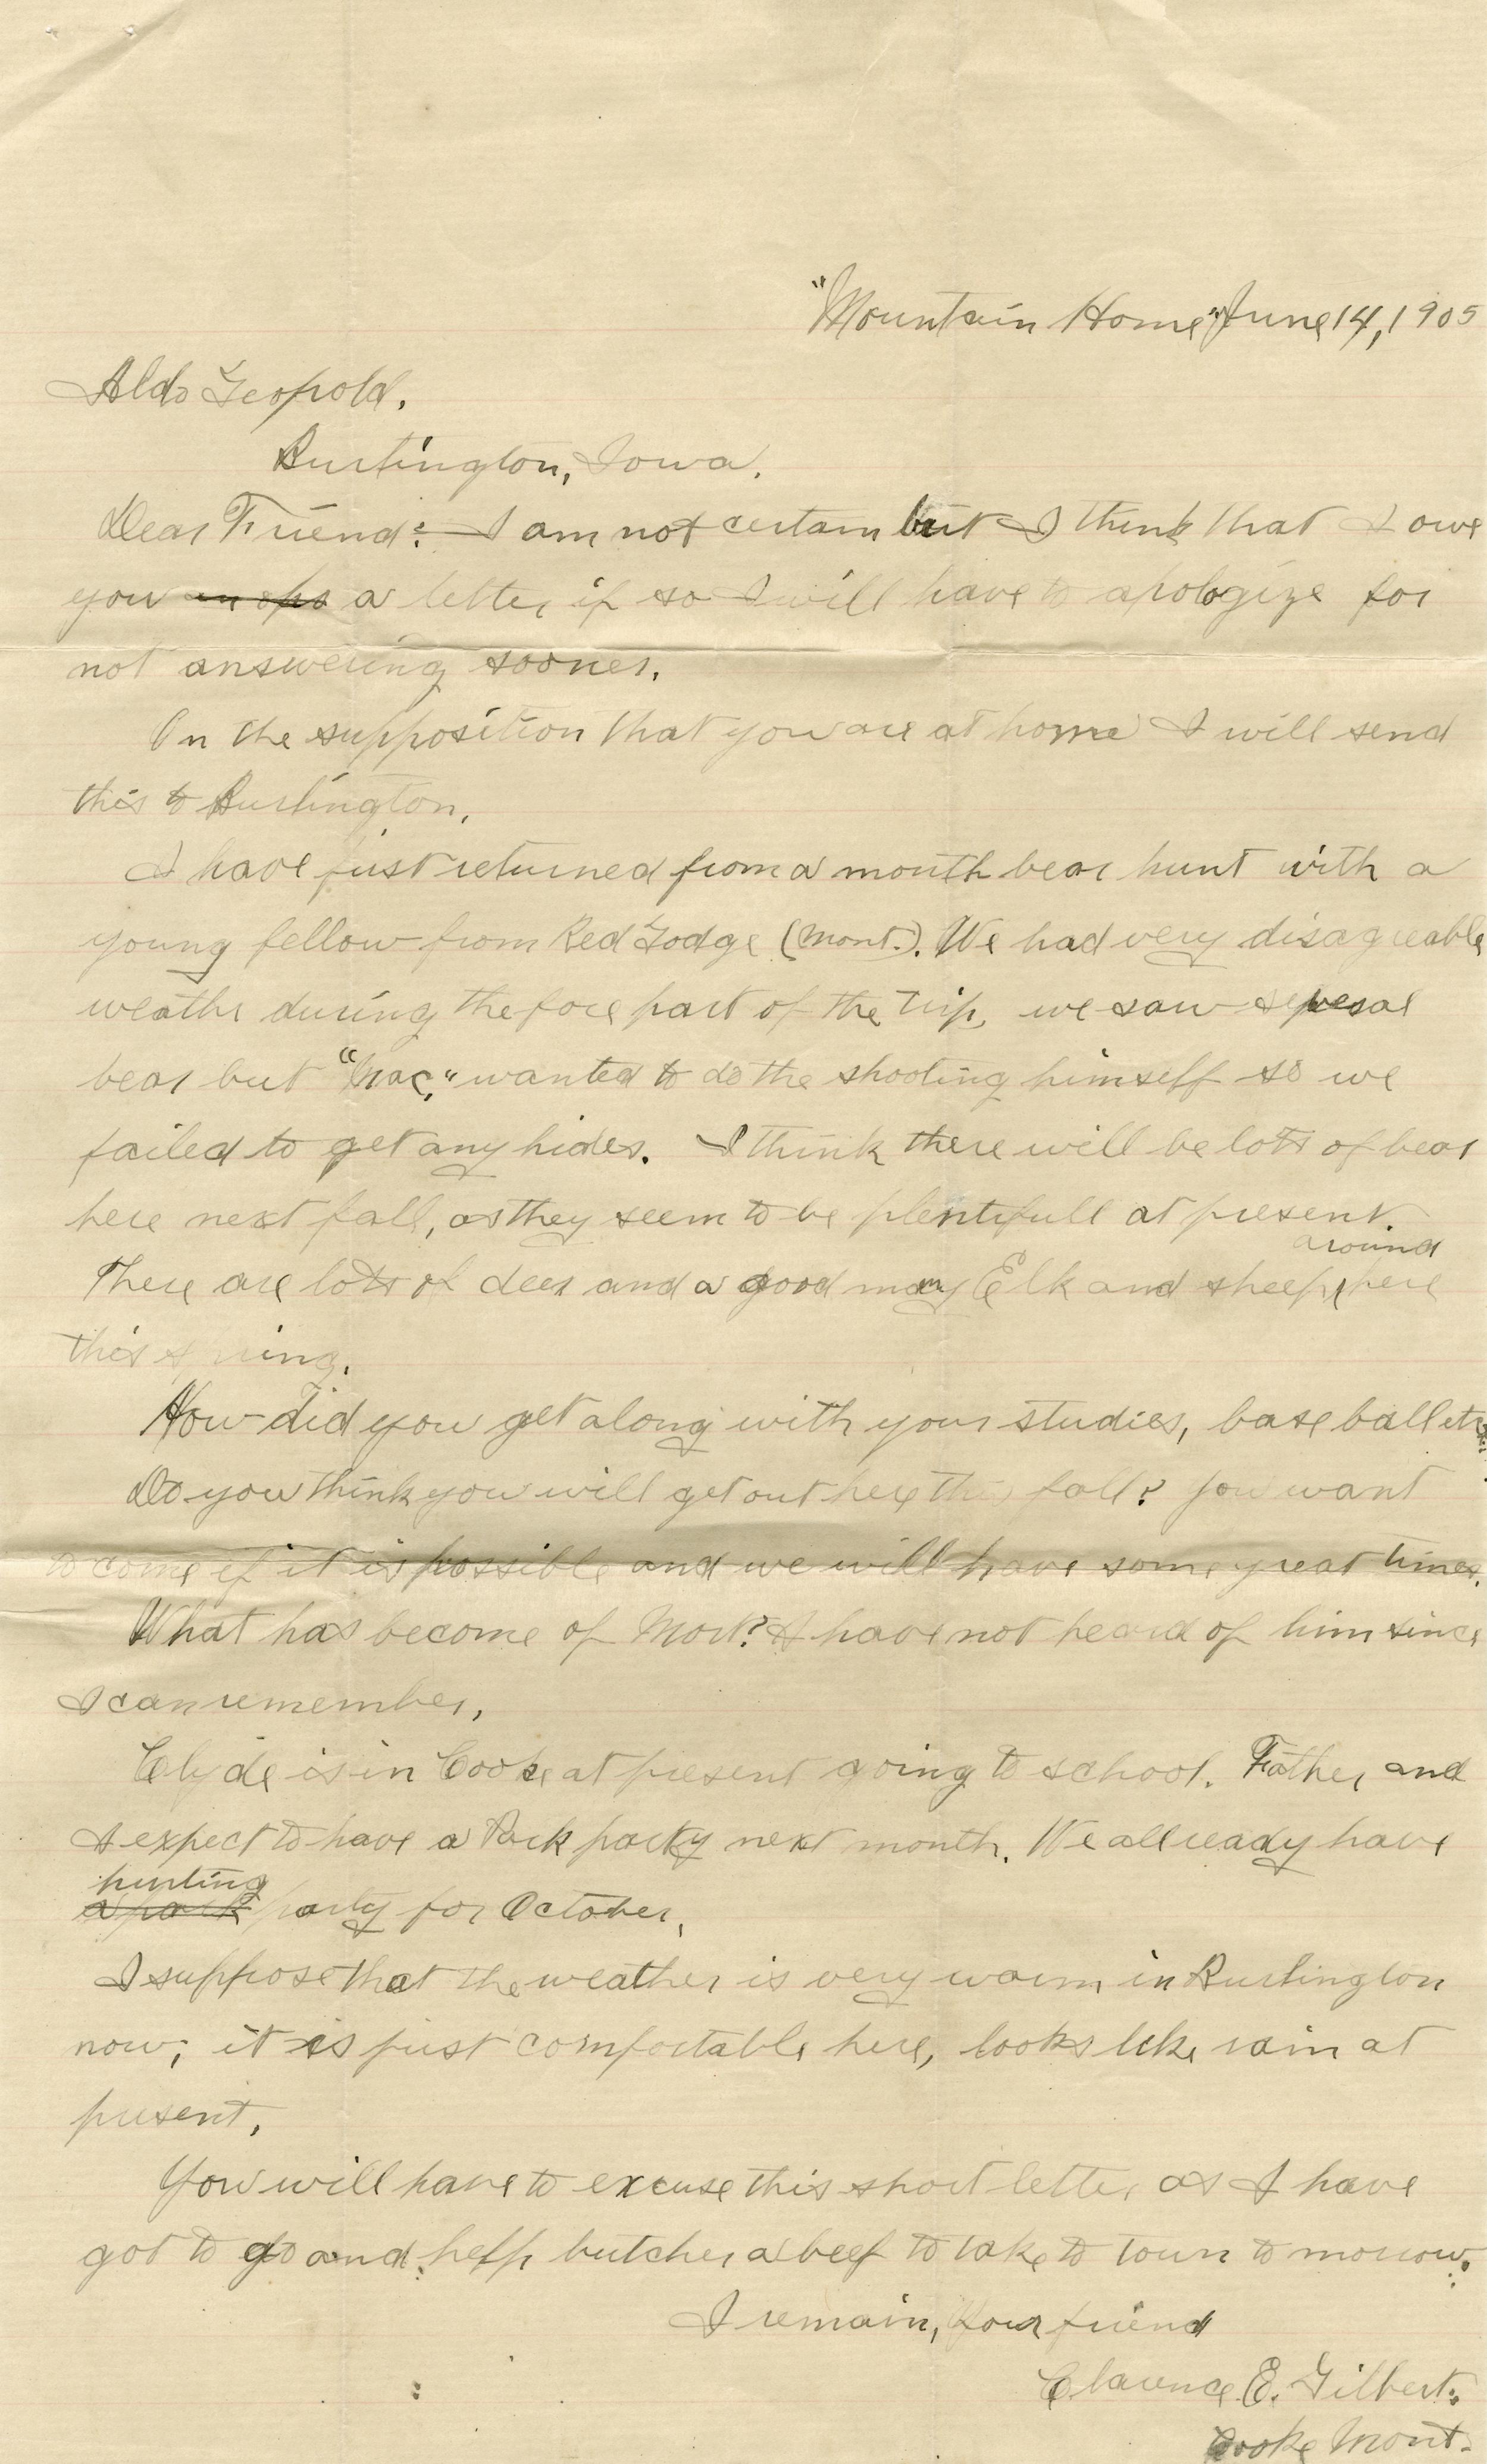 "Mountain Home" June 14, 1905
Aldo Leopold.
Burlington, Iowa.
Dear Friend:— I am not certain but I think that I owe
you a letter, if so I will have to apologize for
not answering sooner.
On the supposition that you are at home I will send
this to Burlington.
I have just returned from a month bear hunt with a
young fellow from Red Lodge (Mont.). We had very disagreable
weathr during the fore part of the trip, we saw several
bear but "Mac," wanted to do the shooting himself so we
failed to get any hides. I think there will be lots of bear
here next fall, as they seem to be plentifull at present.
around
There are lots of deer and a good many Elk and sheep here
this spring.
How did you get along with your studies, base ball etc.
Do you think you will get out here this fall? You want
to come if it is possible and we will have some great times.
What has become of Mort? I have not heard of him since
I can remember.
Clyde is in Cooke at present going to school. Father and
I expect to have a Park party next month. We allready have
hunting
a park party for October.
I suppose that the weather is very warm in Burlington
now; it is just comfortable here, looks like rain at
present.
You will have to excuse this short letter as I have
got to go and help butcher a beef to take to town to morrow.
I remain, Your friend
Clarence E. Gilbert.
Cooke Mont.